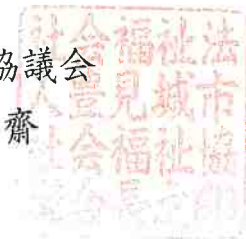 協議会
齋
社会福祉法
人豊見城市
社会福祉協
会長